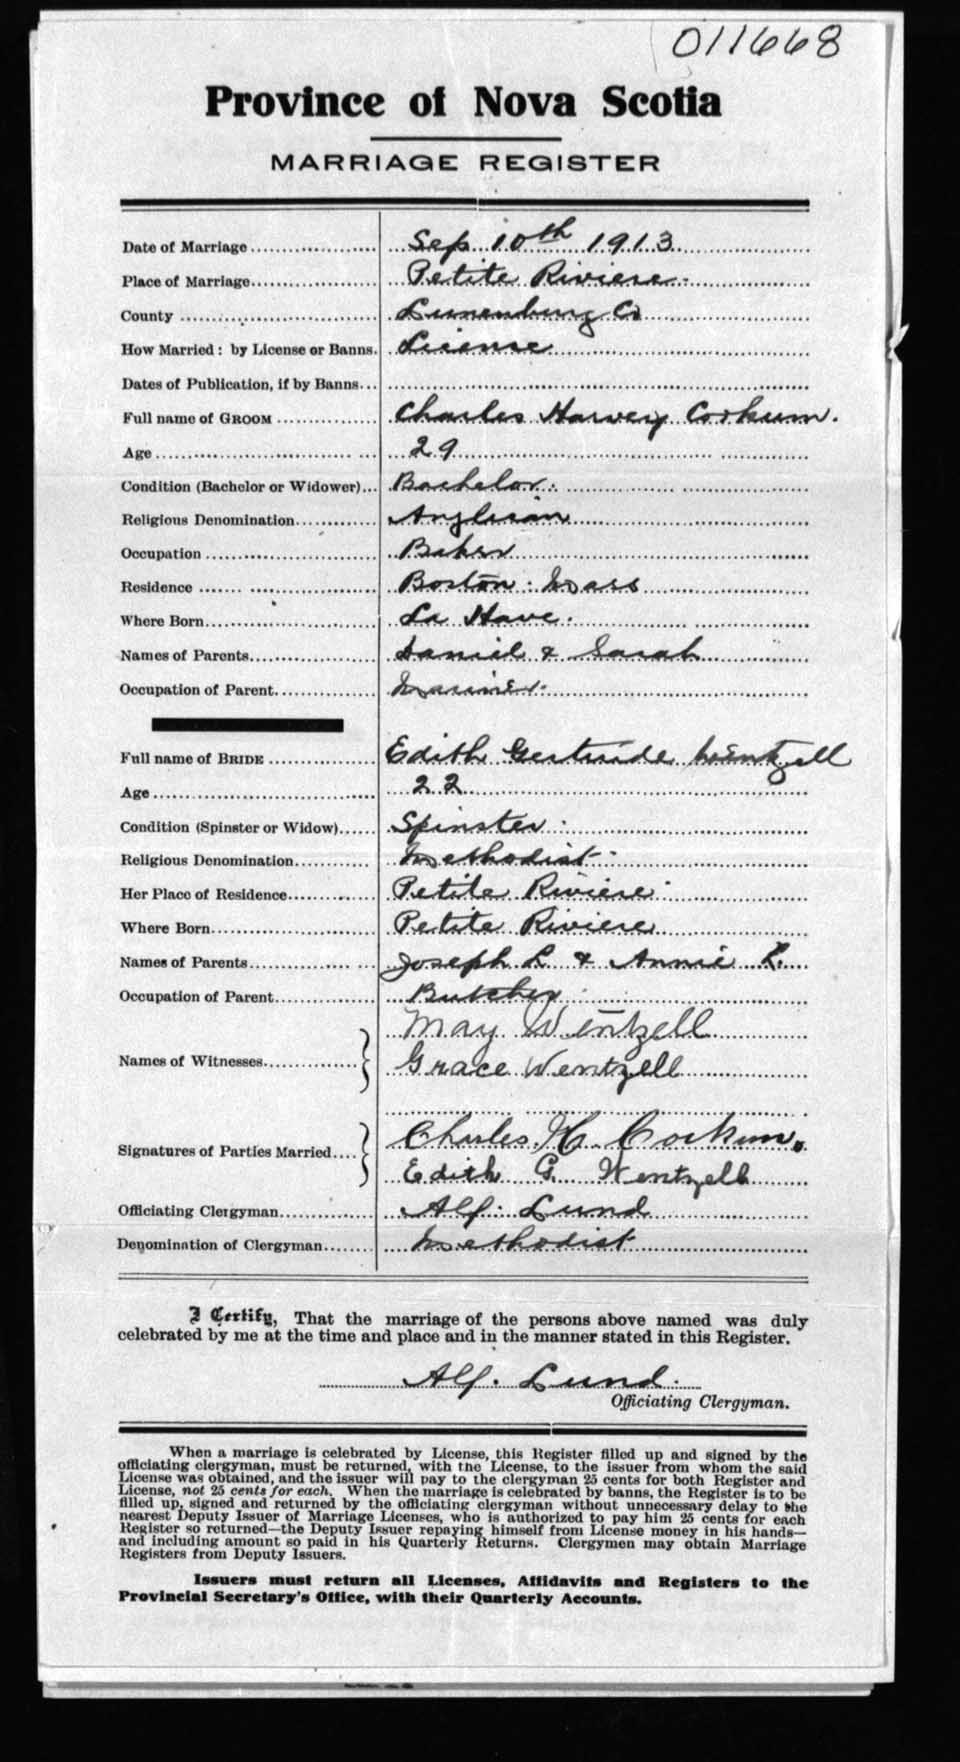 011668
Province of Nova Scotia
MARRIAGE REGISTER
Date of Marriage Sep 10th 1913
Place of Marriage Petite Riviere.
County Lunenburg Co
How Married: by License or Banns. License
Dates of Publication, if by Banns
Full name of GROOM Charles Harvey Corkum.
Age 29
Condition (Bachelor or Widower) Bachelor.
Religious Denomination Anglican
Occupation Baker
Residence Boston. Mass
Where Born La Have.
Names of Parents Daniel & Sarah
Occupation of Parent Mariner.
Full name of BRIDE Edith Gertrude Wentzell
Age 22
Condition (Spinster or Widow) Spinster.
Religious Denomination Methodist
Her Place of Residence Petite Riviere
Where Born Petite Riviere
Names of Parents Joseph L & Annie L.
Occupation of Parent Butcher
Names of Witnesses May Wentzell
Grace Wentzell
Signatures of Parties Married Charles H. Corkum.
Edith G. Wentzell
Officiating Clergyman Alf. Lund
Denomination of Clergyman Methodist
I Certify, That the marriage of the persons above named was duly
celebrated by me at the time and place and in the manner stated in this Register.
Alf. Lund.
Officiating Clergyman.
When a marriage is celebrated by License, this Register filled up and signed by the
officiating clergyman, must be returned, with the License, to the issuer from whom the said
License was obtained, and the issuer will pay to the clergyman 25 cents for both Register and
License, not 25 cents for each. When the marriage is celebrated by banns, the Register is to be
filled up, signed and returned by the officiating clergyman without unnecessary delay to the
nearest Deputy Issuer of Marriage Licenses, who is authorized to pay him 25 cents for each
Register so returned—the Deputy Issuer repaying himself from License money in his hands—
and including amount so paid in his Quarterly Returns. Clergymen may obtain Marriage
Registers from Deputy Issuers.
Issuers must return all Licenses, Affidavits and Registers to the
Provincial Secretary's Office, with their Quarterly Accounts.